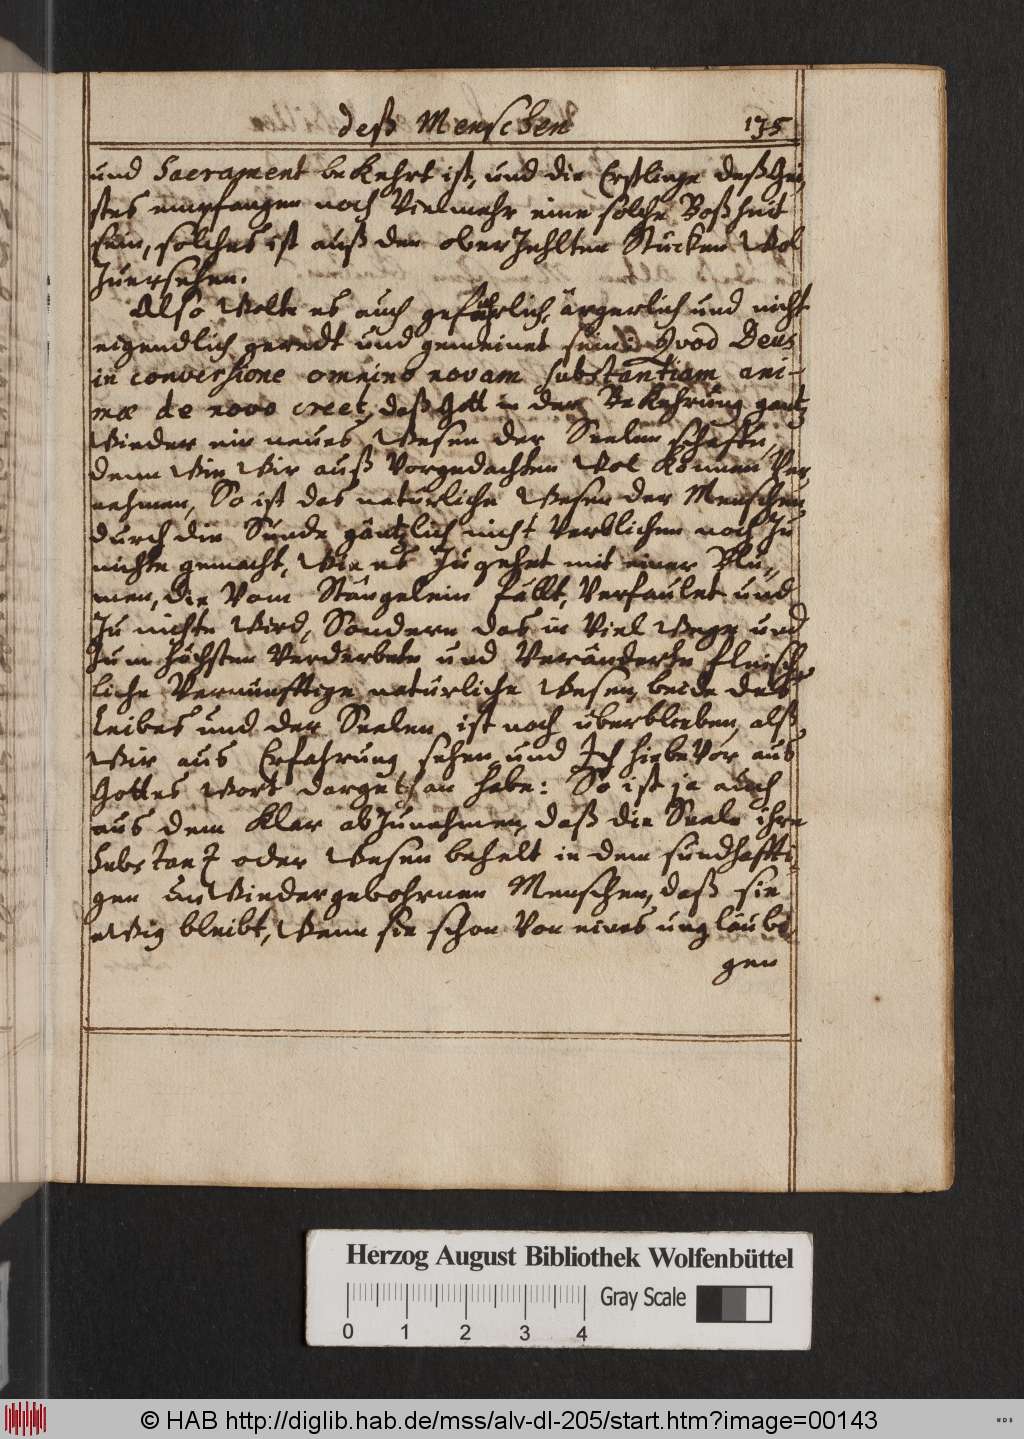 deß Menschen 135
und Sacrament bekehrt ist, und die Erstlinge deß Gei
stes empfangen noch Vielmehr eine solche Boßheit
sein, solches ist auß den ober Zehlten Stücken Wol
Zuersehen.
Also Wolte es auch gefährlich, ärgerlich und nicht
eigendlich geredt und gemeinet sein: Qvod Deus
in conversione omnino novam substantiam ani-
mæ de novo creet, daß Gott in der Bekehrung gantz
Wieder ein neues Wesen der Seelen schaffe,
denn Wie Wir auß Vorgedachten Wol können Ver
nehmen, So ist das natürliche Wesen der Menschen
durch die Sünde gäntzlich nicht Verblichen noch Zu
nichte gemacht, Wie es Zugehet mit einer Blu„
men, die Vom Stängelein fällt, Verfaulet und
Zu nichte Wird, Sondern das in Viel Wege und
Zum höchsten Verderbete und Veränderte fleisch„
liche Vernünfftige natürliche Wesen, beide des
Leibes und der Seelen, ist noch überblieben, alß
Wir aus Erfahrung sehen, und Ich hiebeVor aus
Gottes Wort dargethan habe: So ist ja auch
aus dem klar abZunehmen, daß die Seele ihre
SubstantZ oder Wesen behelt in dem sündhaffti„
gen unWiedergebohrnen Menschen, daß sie
eWig bleibt, Wenn sie schon Von eines ungläubi„
gen
Herzog August Bibliothek Wolfenbüttel
Gray Scale
0 1 2 3 4
© HAB http://diglib.hab.de/mss/alv-dl-205/start.htm?image=00143